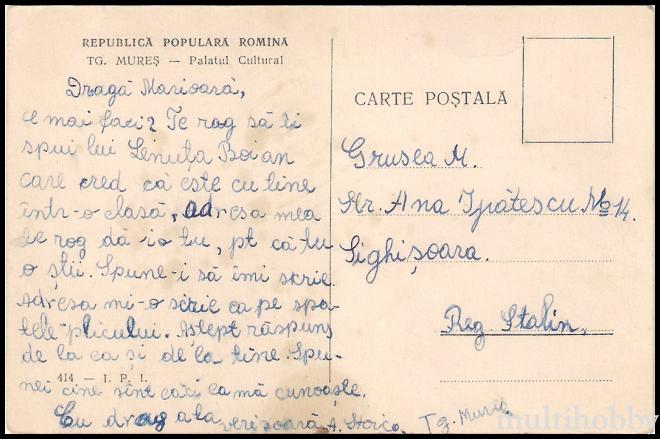 REPUBLICA POPULARĂ ROMÎNĂ
TG. MUREȘ — Palatul Cultural
Dragă Marioară,
Ce mai faci? Te rog să-i
spui lui Lenuța Boian
care cred că este cu tine
într-o clasă, adresa mea
te rog dă-i-o tu, pt că tu
o știi. Spune-i să îmi scrie.
Adresa mi-o scrie ca pe spa-
tele plicului. Aștept răspuns
de la ea și de la tine. Spu-
414 — I. P. I.
nei cine sînt căci ea mă cunoaște.
Cu drag a ta verișoară A.
Tg. Mureș
CARTE POȘTALĂ
Grusea M.
Str. Ana Ipătescu No 14.
Sighișoara.
Reg. Stalin.
multihobby